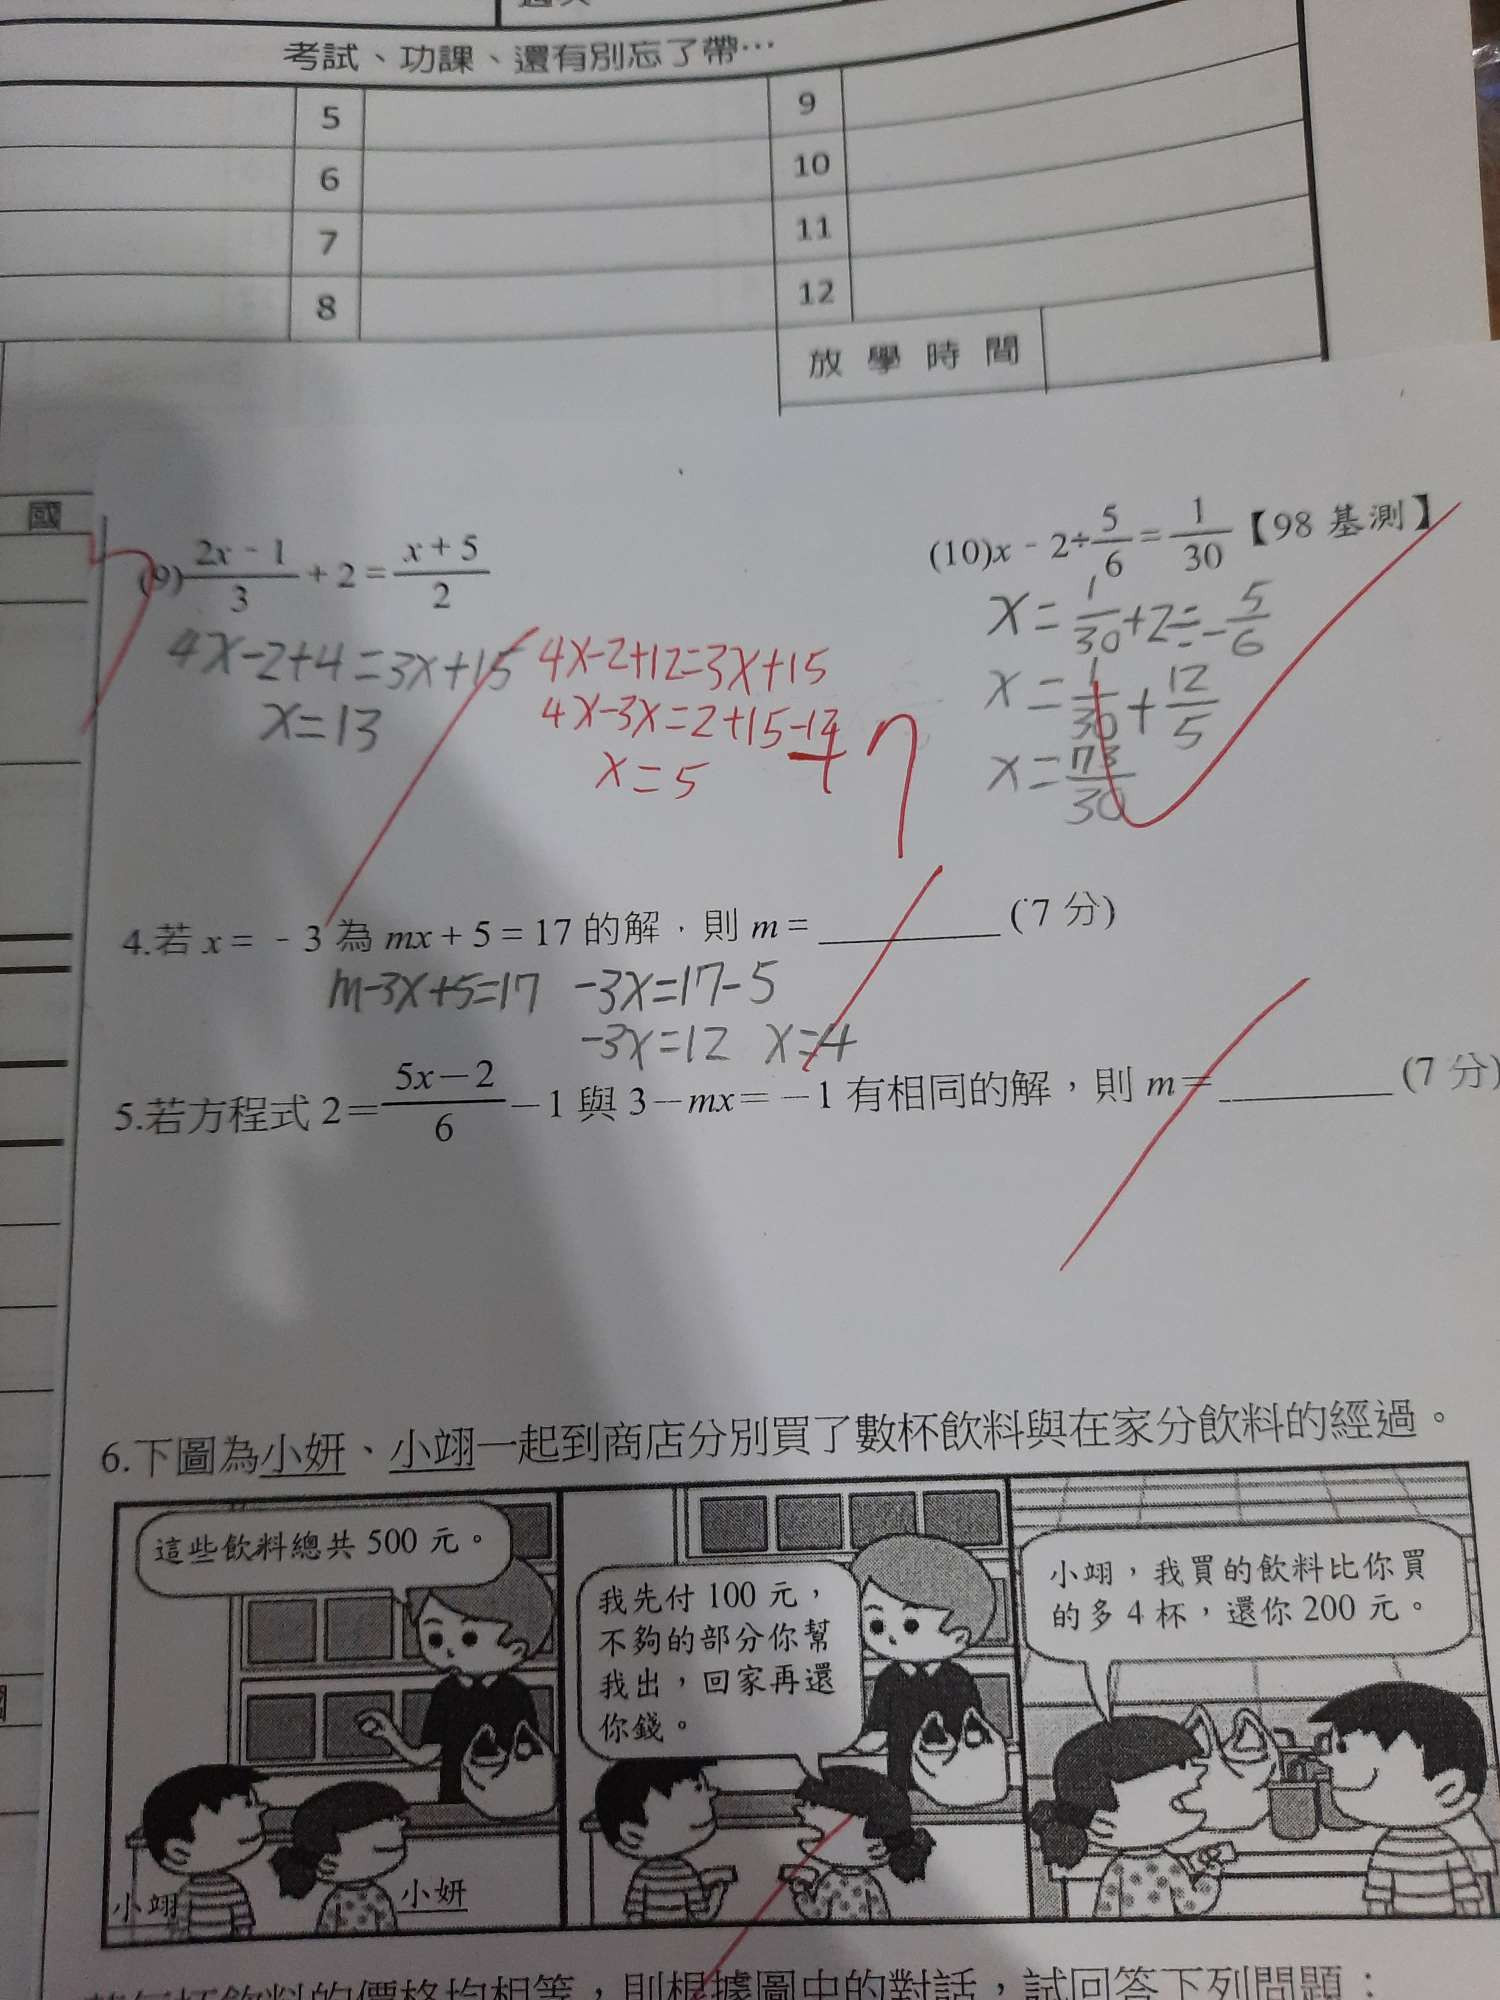 考試、功課、還有別忘了帶…
5
9
6
10
7
11
8
12
放學時間
國
(9) \frac{2x-1}{3}+2=\frac{x+5}{2}
4x-2+4=3x+15
x=13
4x-2+12=3x+15
4x-3x=2+15-12
x=5
+7
(10)x-2÷\frac{5}{6}=\frac{1}{30}【98 基測】
x=\frac{1}{30}+2÷-\frac{5}{6}
x=\frac{1}{30}+\frac{12}{5}
x=\frac{73}{30}
4.若 x= -3 為 mx+5=17 的解，則 m=__________(7 分)
m-3x+5=17 -3x=17-5
-3x=12 x=4
5.若方程式 2=\frac{5x-2}{6}-1 與 3-mx=-1 有相同的解，則 m=__________(7 分)
6.下圖為小妍、小翊一起到商店分別買了數杯飲料與在家分飲料的經過。
這些飲料總共 500 元。
小翊
小妍
我先付 100 元，
不夠的部分你幫
我出，回家再還
你錢。
小翊，我買的飲料比你買
的多 4 杯，還你 200 元。
飲料的價格均相等，則根據圖中的對話，試回答下列問題：